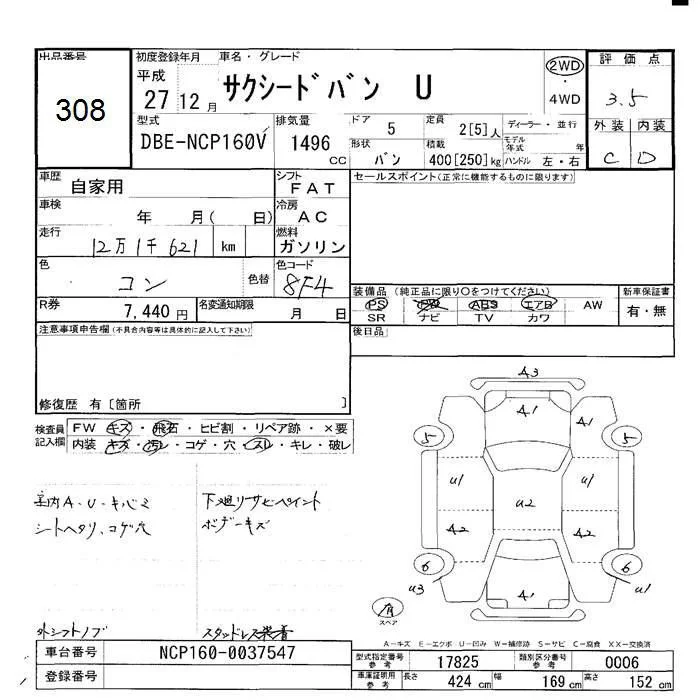 出品番号
308
初度登録年月
平成
27 12 月
車名・グレード
サクシードバン U
2WD
・
4WD
評価点
3.5
外装 内装
C D
型式
DBE-NCP160V
排気量
1496
CC
ドア
5
形状
バン
定員
2[5]人
積載
400[250]kg
ディーラー・並行
モデル年式 年
ハンドル 左・右
車歴
自家用
シフト
FAT
車検
年 月( 日)
冷房
AC
走行
12万1千621 km
燃料
ガソリン
色
コン
色替
色コード
8F4
R券
7,440円
名変通知期限
月 日
セールスポイント(正常に機能するものに限ります)
装備品 (純正品に限り○をつけてください)
PS PW ABS エアB AW
SR ナビ TV カワ
新車保証書
有・無
後日品
注意事項申告欄(不具合内容等は具体的に記入して下さい)
修復歴 有〔箇所 〕
検査員
記入欄
FW キズ・飛石・ヒビ割・リペア跡・×要
内装 キズ・汚レ・コゲ・穴・スレ・キレ・破レ
室内A・U・キバミ
シートヘタリ、コゲ穴
外シフトノブ
下廻リサビペイント
ボデーキズ
スタッドレス装着
A3
A1
A1
5
5
U1
U1
U2
A2
A2
6
6
U3
U1
A1
スペア
A-キズ E-エクボ U-凹み W-補修跡 S-サビ C-腐食 XX-交換済
車台番号
NCP160-0037547
登録番号
型式指定番号
参考
17825
類別区分番号
参考
0006
車庫証明用
参考
長さ
424 cm
幅
169 cm
高さ
152 cm